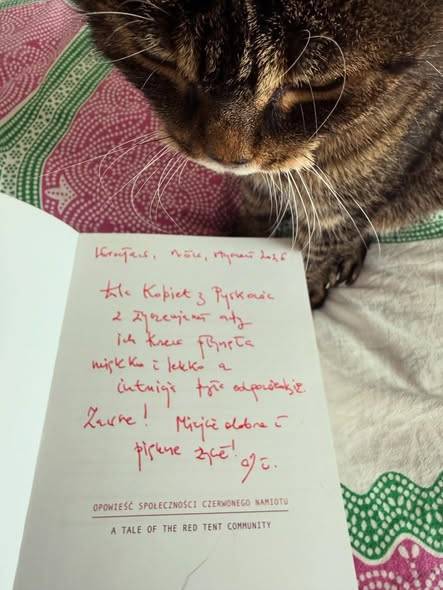 styczeń 2026
Dla Kobiet z Pyskowic
z życzeniami aby
ich krew płynęła
miękko i lekko a
intuicja
Zawsze! Miejcie dobre i
piękne życie!
OPOWIEŚĆ SPOŁECZNOŚCI CZERWONEGO NAMIOTU
A TALE OF THE RED TENT COMMUNITY